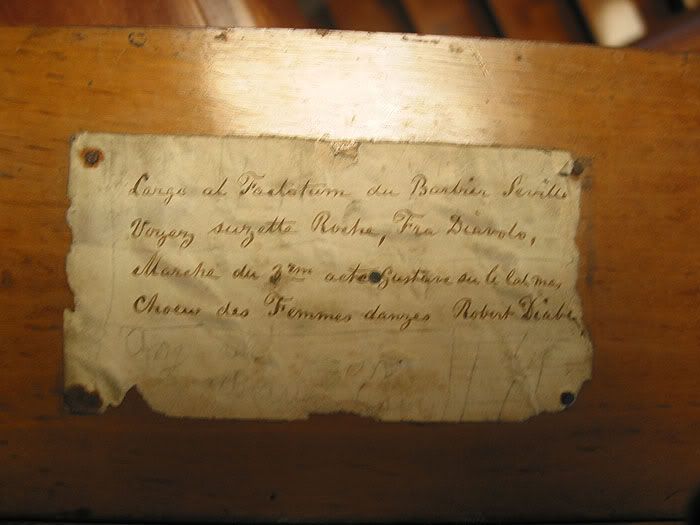 Largo al Factotum du Barbier Seville
Voyez suzette Roche, Fra Diavolo,
Marche du 3me acte Gustave ou le bal mas
Choeur des Femmes danzes Robert Diabl